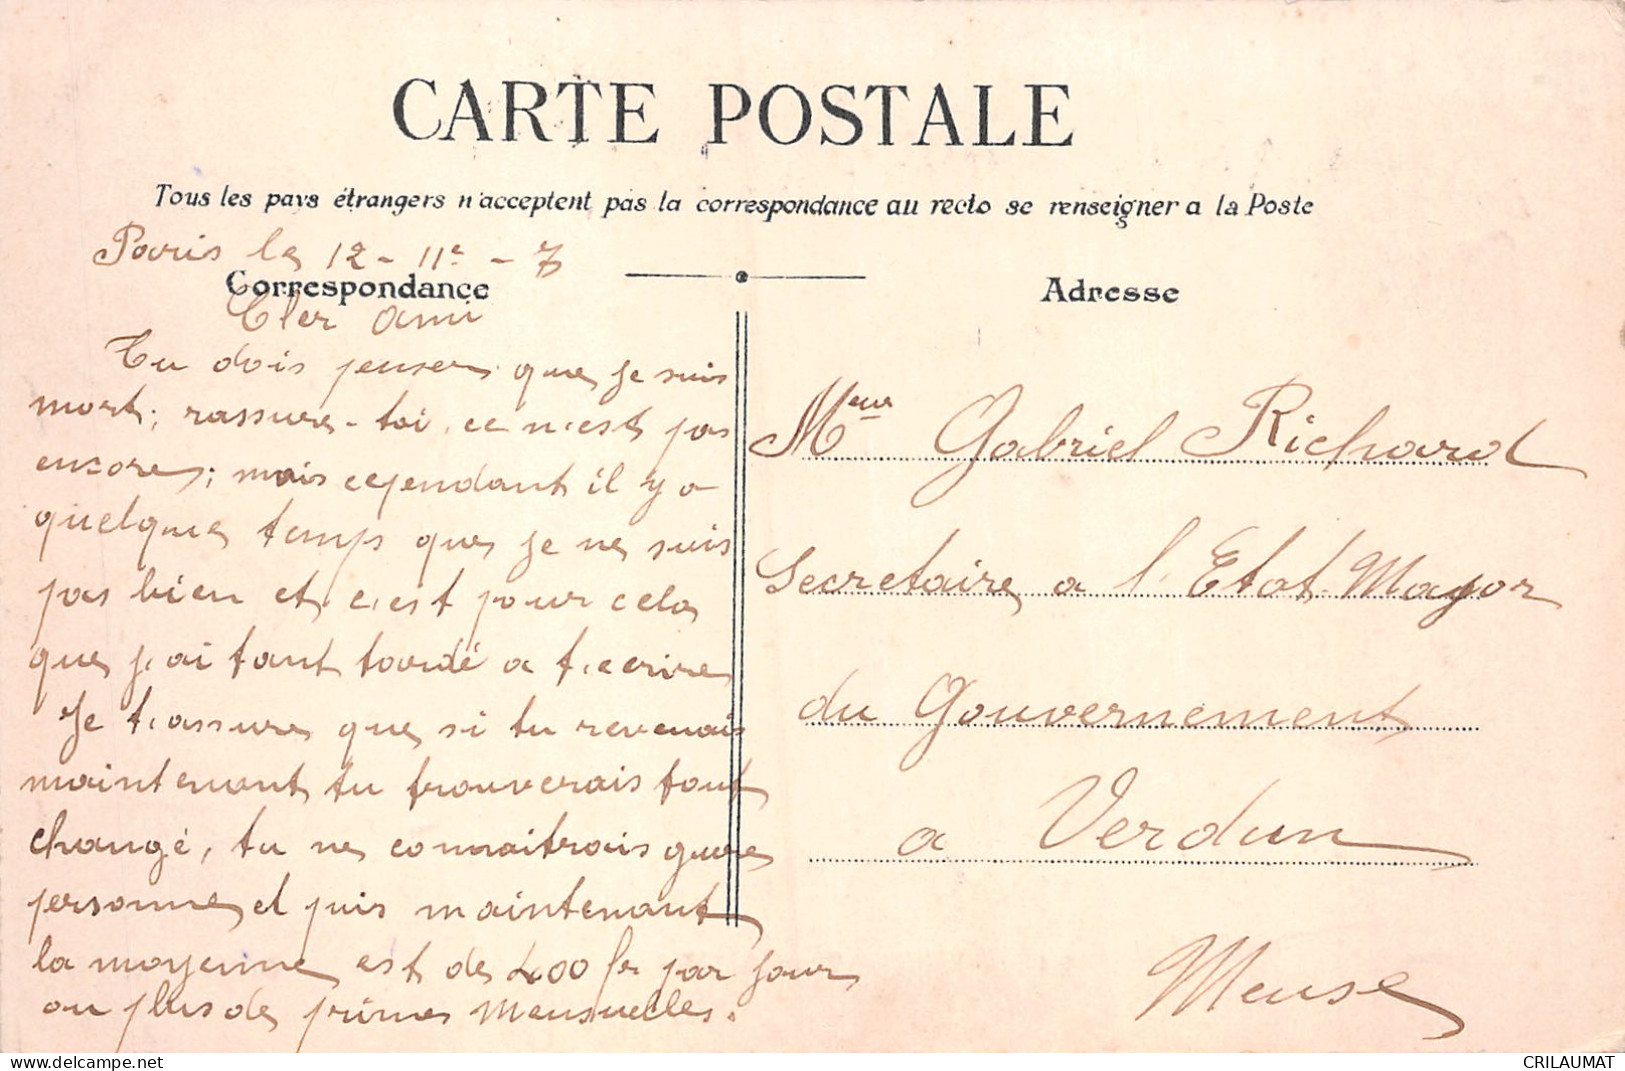 CARTE POSTALE
Tous les pays étrangers n'acceptent pas la correspondance au recto se renseigner a la Poste
Paris le 12 - 11e - 7
Correspondance
Cher ami
Tu dois penser que je suis
mort; rassure-toi ce n'est pas
encore; mais cependant il y a
quelque temps que je ne suis
pas bien et c'est pour cela
que j'ai tant tardé a t'ecrire
Je t'assure que si tu revenais
maintenant tu trouverais tout
changé, tu ne connaitrais guere
personne et puis maintenant
la moyenne est de 400 fr par jour
ou plus de primes mensuelles.
Adresse
Gabriel Richard
Secretaire a l'Etat-Mayor
du Gouvernement
a Verdun
Meuse
www.delcampe.net
CRILAUMAT